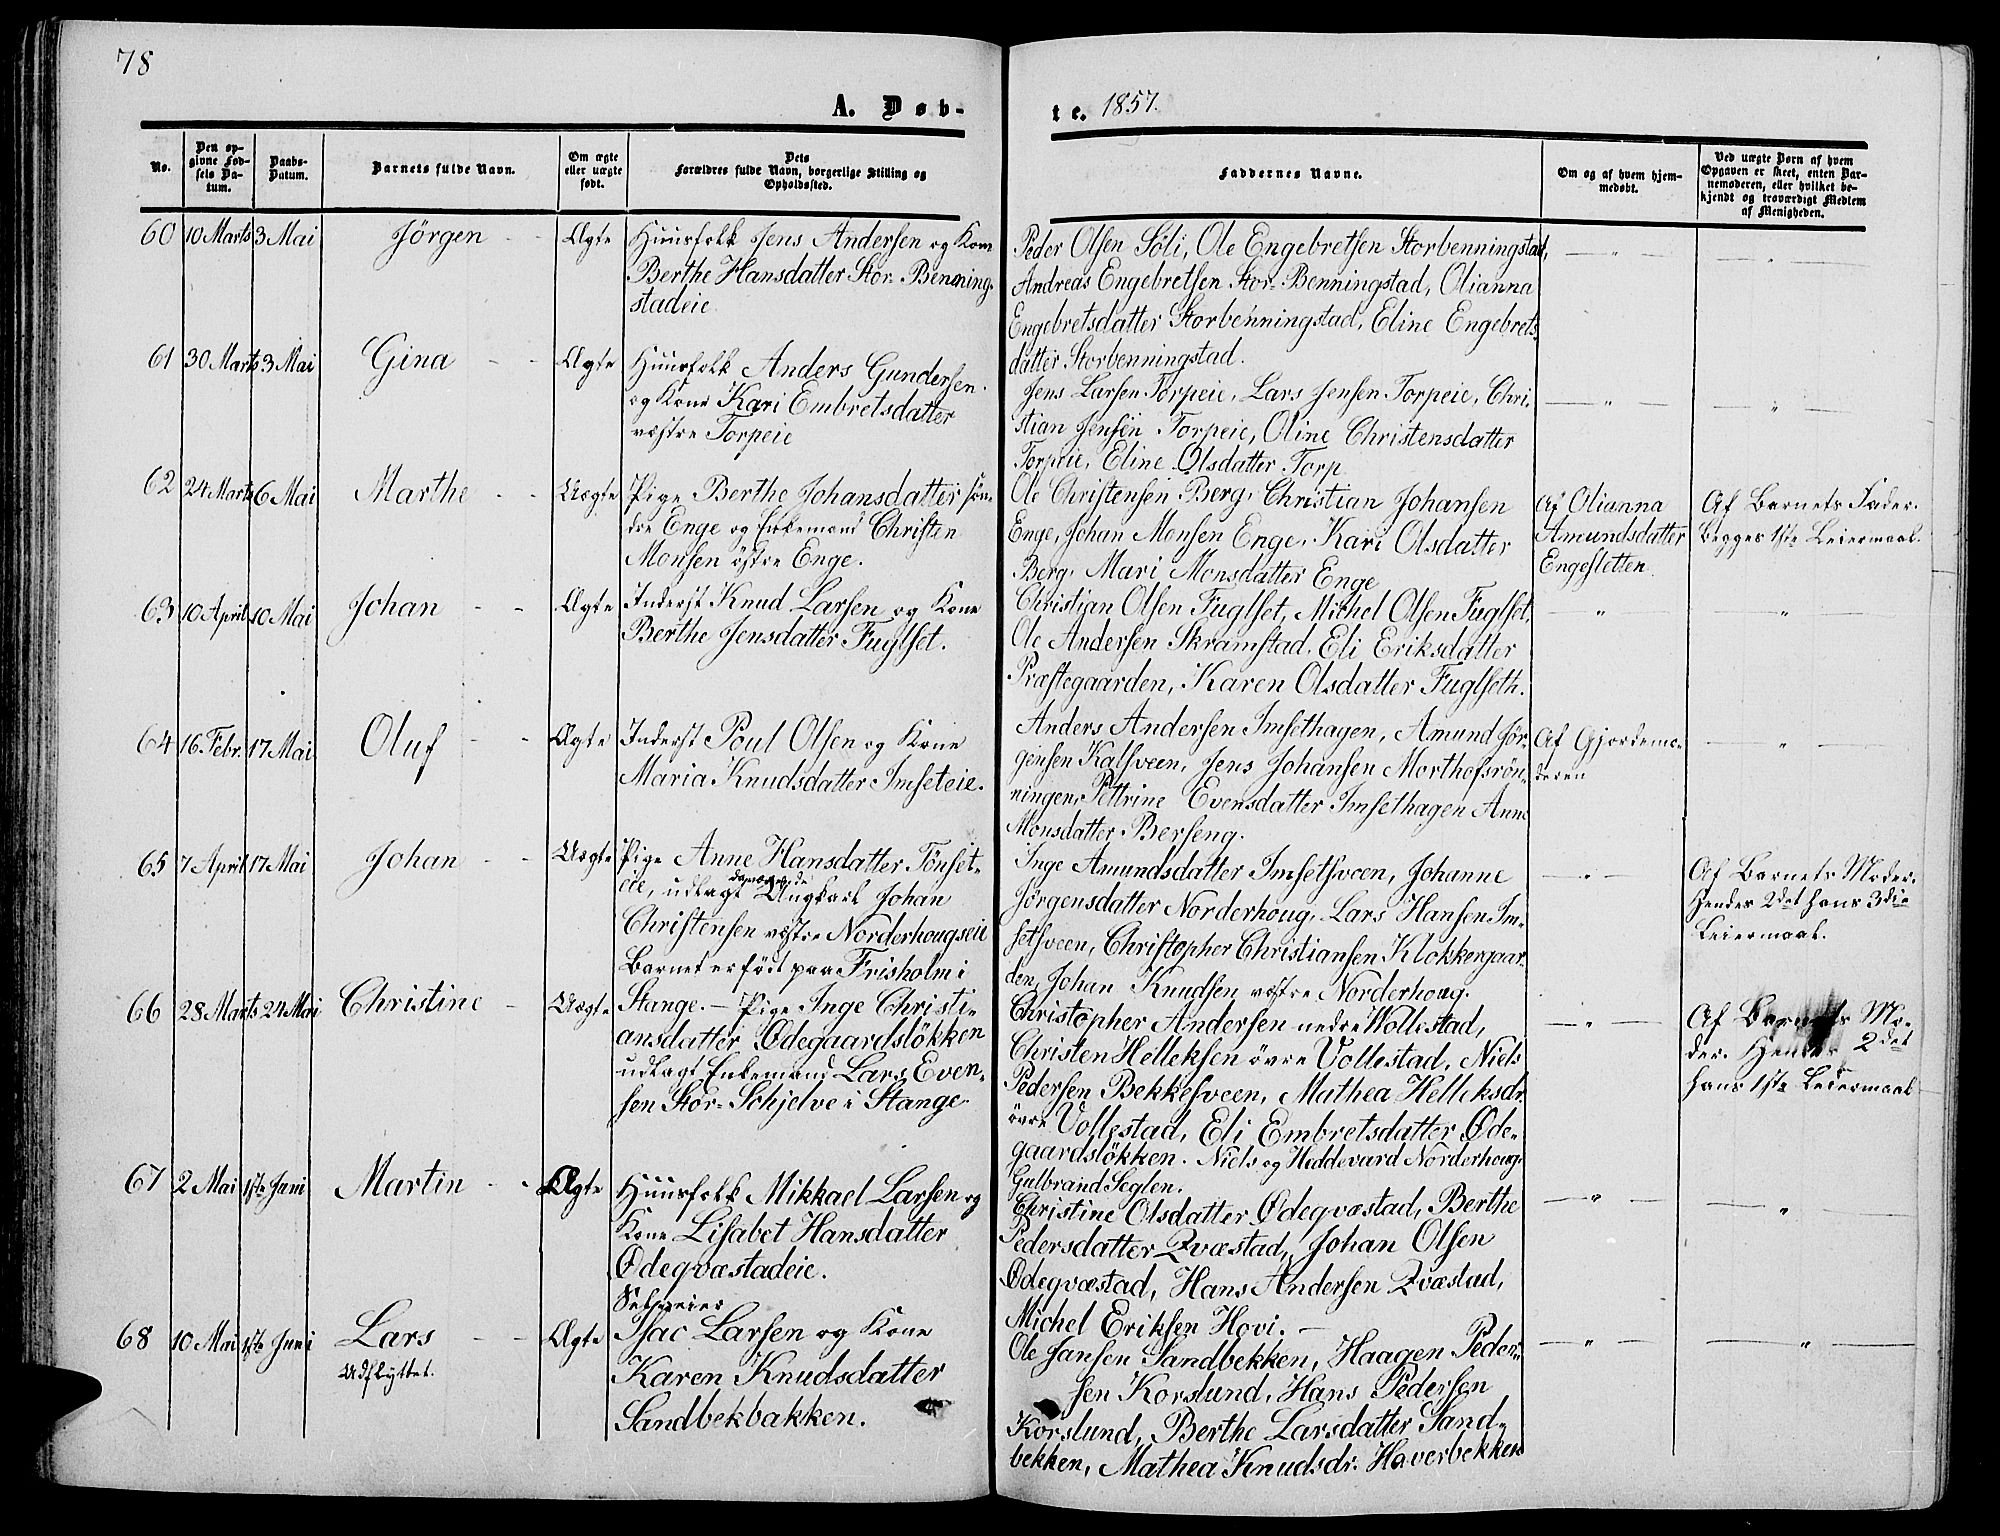 78
A. Døb-
te. 1857.
No.
Den op-
givne Fød-
sels Da-
tum.
Daabs-
Datum.
Barnets fulde Navn.
Om ægte
eller uægte
født.
Dets
Forældres fulde Navn, borgerlige Stilling og
Opholdssted.
Faddernes Navne.
Om og af hvem hjem-
medøbt.
Ved uægte Børn af hvem
Opgaven er skeet, enten Bar-
nemoderen, eller hvilket be-
kjendt og troværdigt Medlem
af Menigheden.
60 10 Marts 3 Mai Jörgen - - Ægte
Huusfolk Jens Andersen og Kone
Berthe Hansdatter Stor-Benning-
stadeie
Peder Olsen Söli, Ole Engebretsen Storbenningstad,
Andreas Engebretsen Stor-Benningstad, Olianna
Engebretsdatter Storbenningstad, Eline Engebrets-
datter Storbenningstad.
— " —
— " —
61 30 Marts 3 Mai Gina - - Ægte
Huusfolk Anders Gundersen
og Kone Kari Embretsdatter
vestre Torpeie
Jens Larsen Torpeie, Lars Jensen Torpeie, Chri-
stian Jensen Torpeie, Oline Christensdatter
Torpeie, Eline Olsdatter Torp
— " —
— " —
62 24 Marts 6 Mai Marthe - - Uægte
Pige Berthe Johansdatter sön-
dre Enge og Enkemand Christen
Monsen östre Enge.
Ole Christensen Berg, Christian Johansen
Enge, Johan Monsen Enge, Kari Olsdatter
Berg, Mari Monsdatter Enge
Af Olianna
Amundsdatter
Engesletten
Af Barnets Fader.
Begges 1ste Leiermaal.
63 10 April 10 Mai Johan - - Ægte
Inderst Knud Larsen og Kone
Berthe Jensdatter Fuglset.
Christian Olsen Fuglset, Michel Olsen Fuglset,
Ole Andersen Skramstad, Eli Eriksdatter
Præstegaarden, Karen Olsdatter Fuglseth.
— " —
— " —
64 16. Febr. 17 Mai Oluf - - Ægte
Inderst Poul Olsen og Kone
Maria Knudsdatter Imseteie.
Anders Andersen Imsethagen, Amund Jör-
gensen Kalsveen, Jens Johansen Morthofsrön-
ningen, Pettrine Evensdatter Imsethagen Anne
Monsdatter Berseng.
Af Gjordemo-
deren
— " —
65 7 April 17 Mai Johan - - Uægte
Pige Anne Hansdatter Tönset-
eie, udlagt daværende Ungkarl Johan
Christensen vestre Norderhougseie
Barnet er født paa Frisholm i
Stange. —
Inge Amundsdatter Imsetsveen, Johanne
Jörgensdatter Norderhoug, Lars Hansen Im-
setsveen, Christopher Christiansen Klokkergaar-
den, Johan Knudsen vestre Norderhoug.
— " —
Af Barnets Moder.
Hendes 2det hans 3die
Leiermaal.
66 28 Marts 24 Mai Christine - Uægte
Pige Inge Christi-
ansdatter Ödegaardslökken
udlagt Enkemand Lars Even-
sen Stor-Schjelve i Stange
Christopher Andersen nedre Wollestad,
Christen Helleksen övre Vollestad, Niels
Pedersen Bekkesveen, Mathea Helleksdr.
övre Vollestad, Eli Embretsdatter Öde-
gaardslökken. Niels og Heddevard Norderhoug.
Gulbrand Seglen.
— " —
Af Barnets Mo-
der. Hendes 2det
hans 1ste Leiermaal
67 2 Mai 1ste Juni Martin - - Ægte
Huusfolk Mikkael Larsen og
Kone Lisabet Hansdatter
Ödeqvæstadeie.
Christine Olsdatter Ödeqvæstad, Berthe
Pedersdatter Qvæstad, Johan Olsen
Ödeqvæstad, Hans Andersen Qvæstad,
Michel Eriksen Hovi. —
— " —
— " —
68 10 Mai 1ste Juni Lars - - Ægte
Udflyttet.
Selveier
Isac Larsen og Kone
Karen Knudsdatter
Sandbekbakken.
Ole Jansen Sandbekken, Haagen Peder-
sen Korslund, Hans Pedersen
Korslund, Berthe Larsdatter Sand-
bekken, Mathea Knudsdr. Haverbekken
— " —
— " —